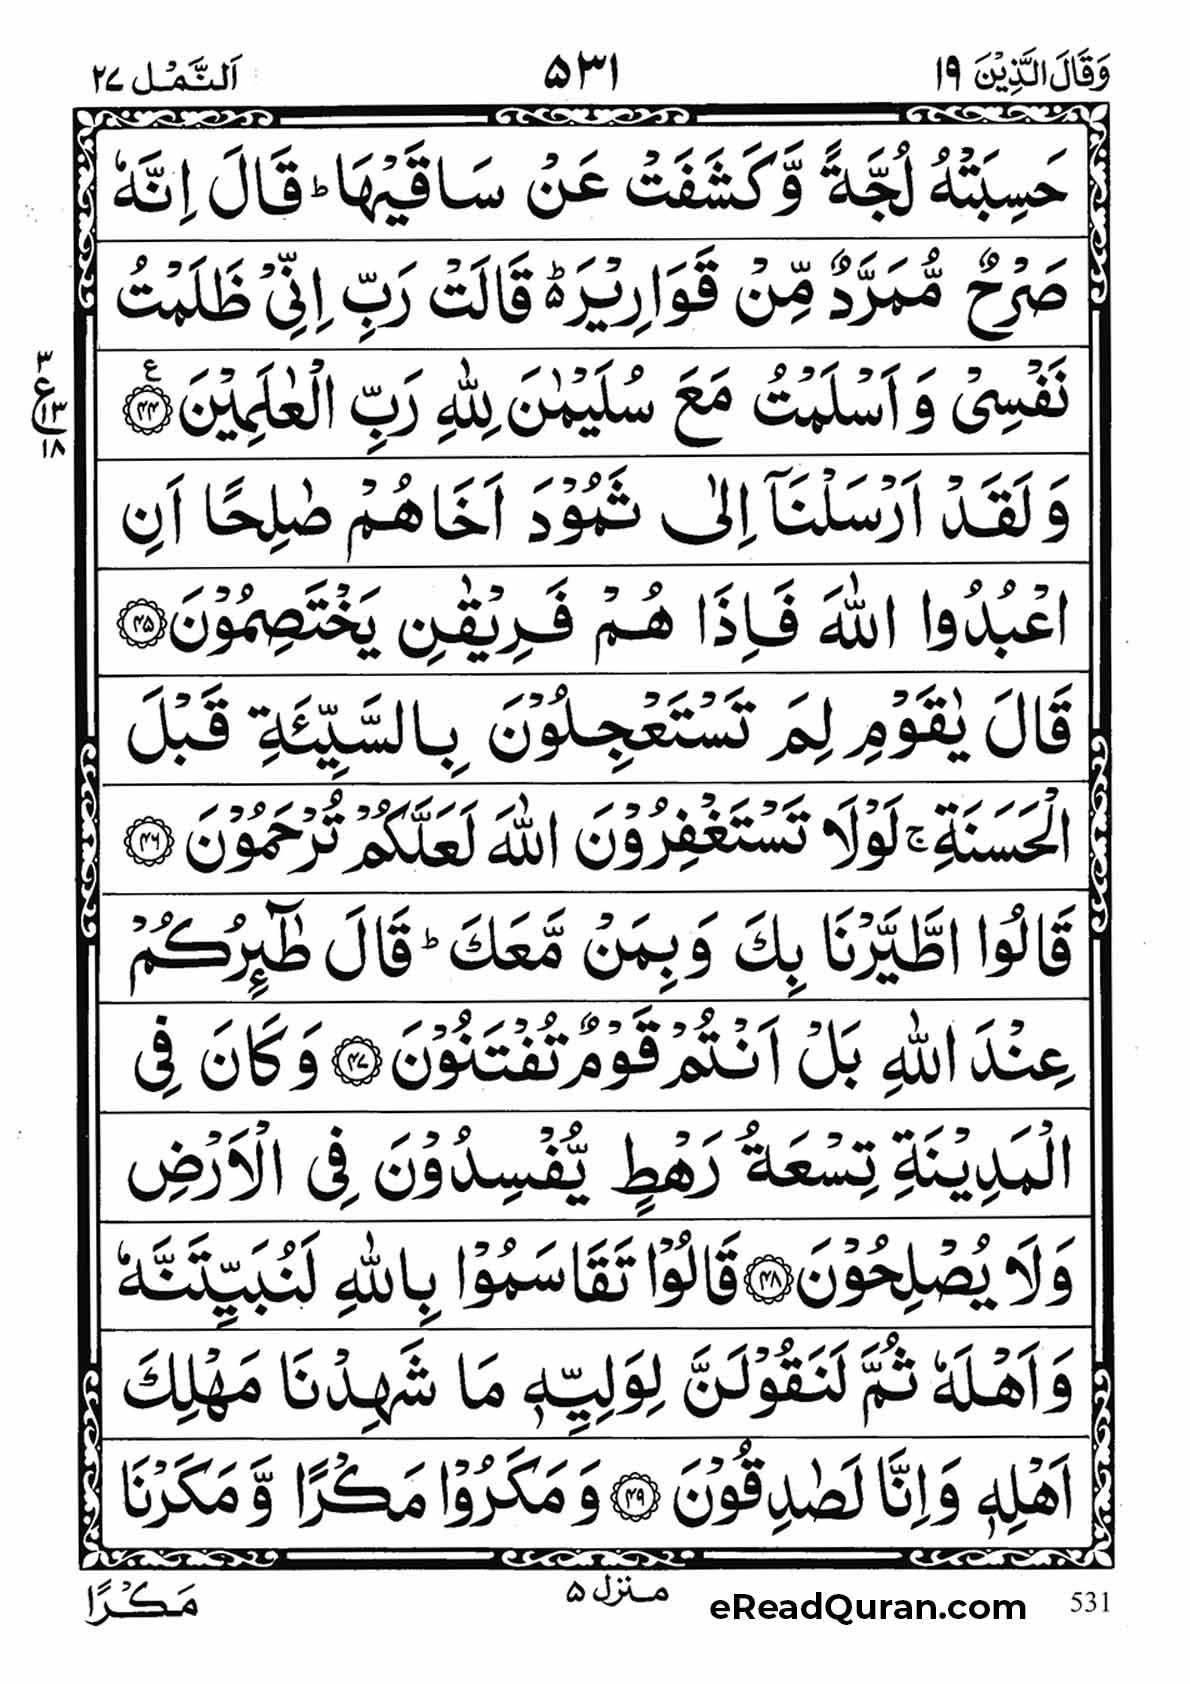 وَقَالَ الَّذِيْنَ ۱۹ ۵۳۱ اَلنَّمْل ۲۷
حَسِبَتْهُ لُجَّةً وَّكَشَفَتْ عَنْ سَاقَيْهَا ؕ قَالَ اِنَّهٗ
صَرْحٌ مُّمَرَّدٌ مِّنْ قَوَارِيْرَ ؕ۬ قَالَتْ رَبِّ اِنِّيْ ظَلَمْتُ
نَفْسِيْ وَاَسْلَمْتُ مَعَ سُلَيْمٰنَ لِلّٰهِ رَبِّ الْعٰلَمِيْنَ ۴۴ ع
۳ ع ۱۳ ۱۸
وَلَقَدْ اَرْسَلْنَاۤ اِلٰى ثَمُوْدَ اَخَاهُمْ صٰلِحًا اَنِ
اعْبُدُوا اللّٰهَ فَاِذَا هُمْ فَرِيْقٰنِ يَخْتَصِمُوْنَ ۴۵
قَالَ يٰقَوْمِ لِمَ تَسْتَعْجِلُوْنَ بِالسَّيِّئَةِ قَبْلَ
الْحَسَنَةِ ۚ لَوْلَا تَسْتَغْفِرُوْنَ اللّٰهَ لَعَلَّكُمْ تُرْحَمُوْنَ ۴۶
قَالُوا اطَّيَّرْنَا بِكَ وَبِمَنْ مَّعَكَ ؕ قَالَ طٰٓئِرُكُمْ
عِنْدَ اللّٰهِ بَلْ اَنْتُمْ قَوْمٌ تُفْتَنُوْنَ ۴۷ وَكَانَ فِي
الْمَدِيْنَةِ تِسْعَةُ رَهْطٍ يُّفْسِدُوْنَ فِي الْاَرْضِ
وَلَا يُصْلِحُوْنَ ۴۸ قَالُوْا تَقَاسَمُوْا بِاللّٰهِ لَنُبَيِّتَنَّهٗ
وَاَهْلَهٗ ثُمَّ لَنَقُوْلَنَّ لِوَلِيِّهٖ مَا شَهِدْنَا مَهْلِكَ
اَهْلِهٖ وَاِنَّا لَصٰدِقُوْنَ ۴۹ وَمَكَرُوْا مَكْرًا وَّمَكَرْنَا
مَكْرًا
منزل ۵
eReadQuran.com
531